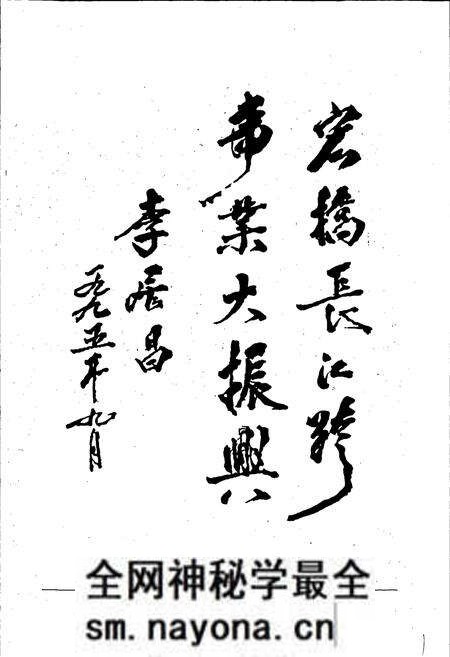 宏橋長江跨
事業大振興
李 昌
一九九五年九月
全网神秘学最全
sm.nayona.cn